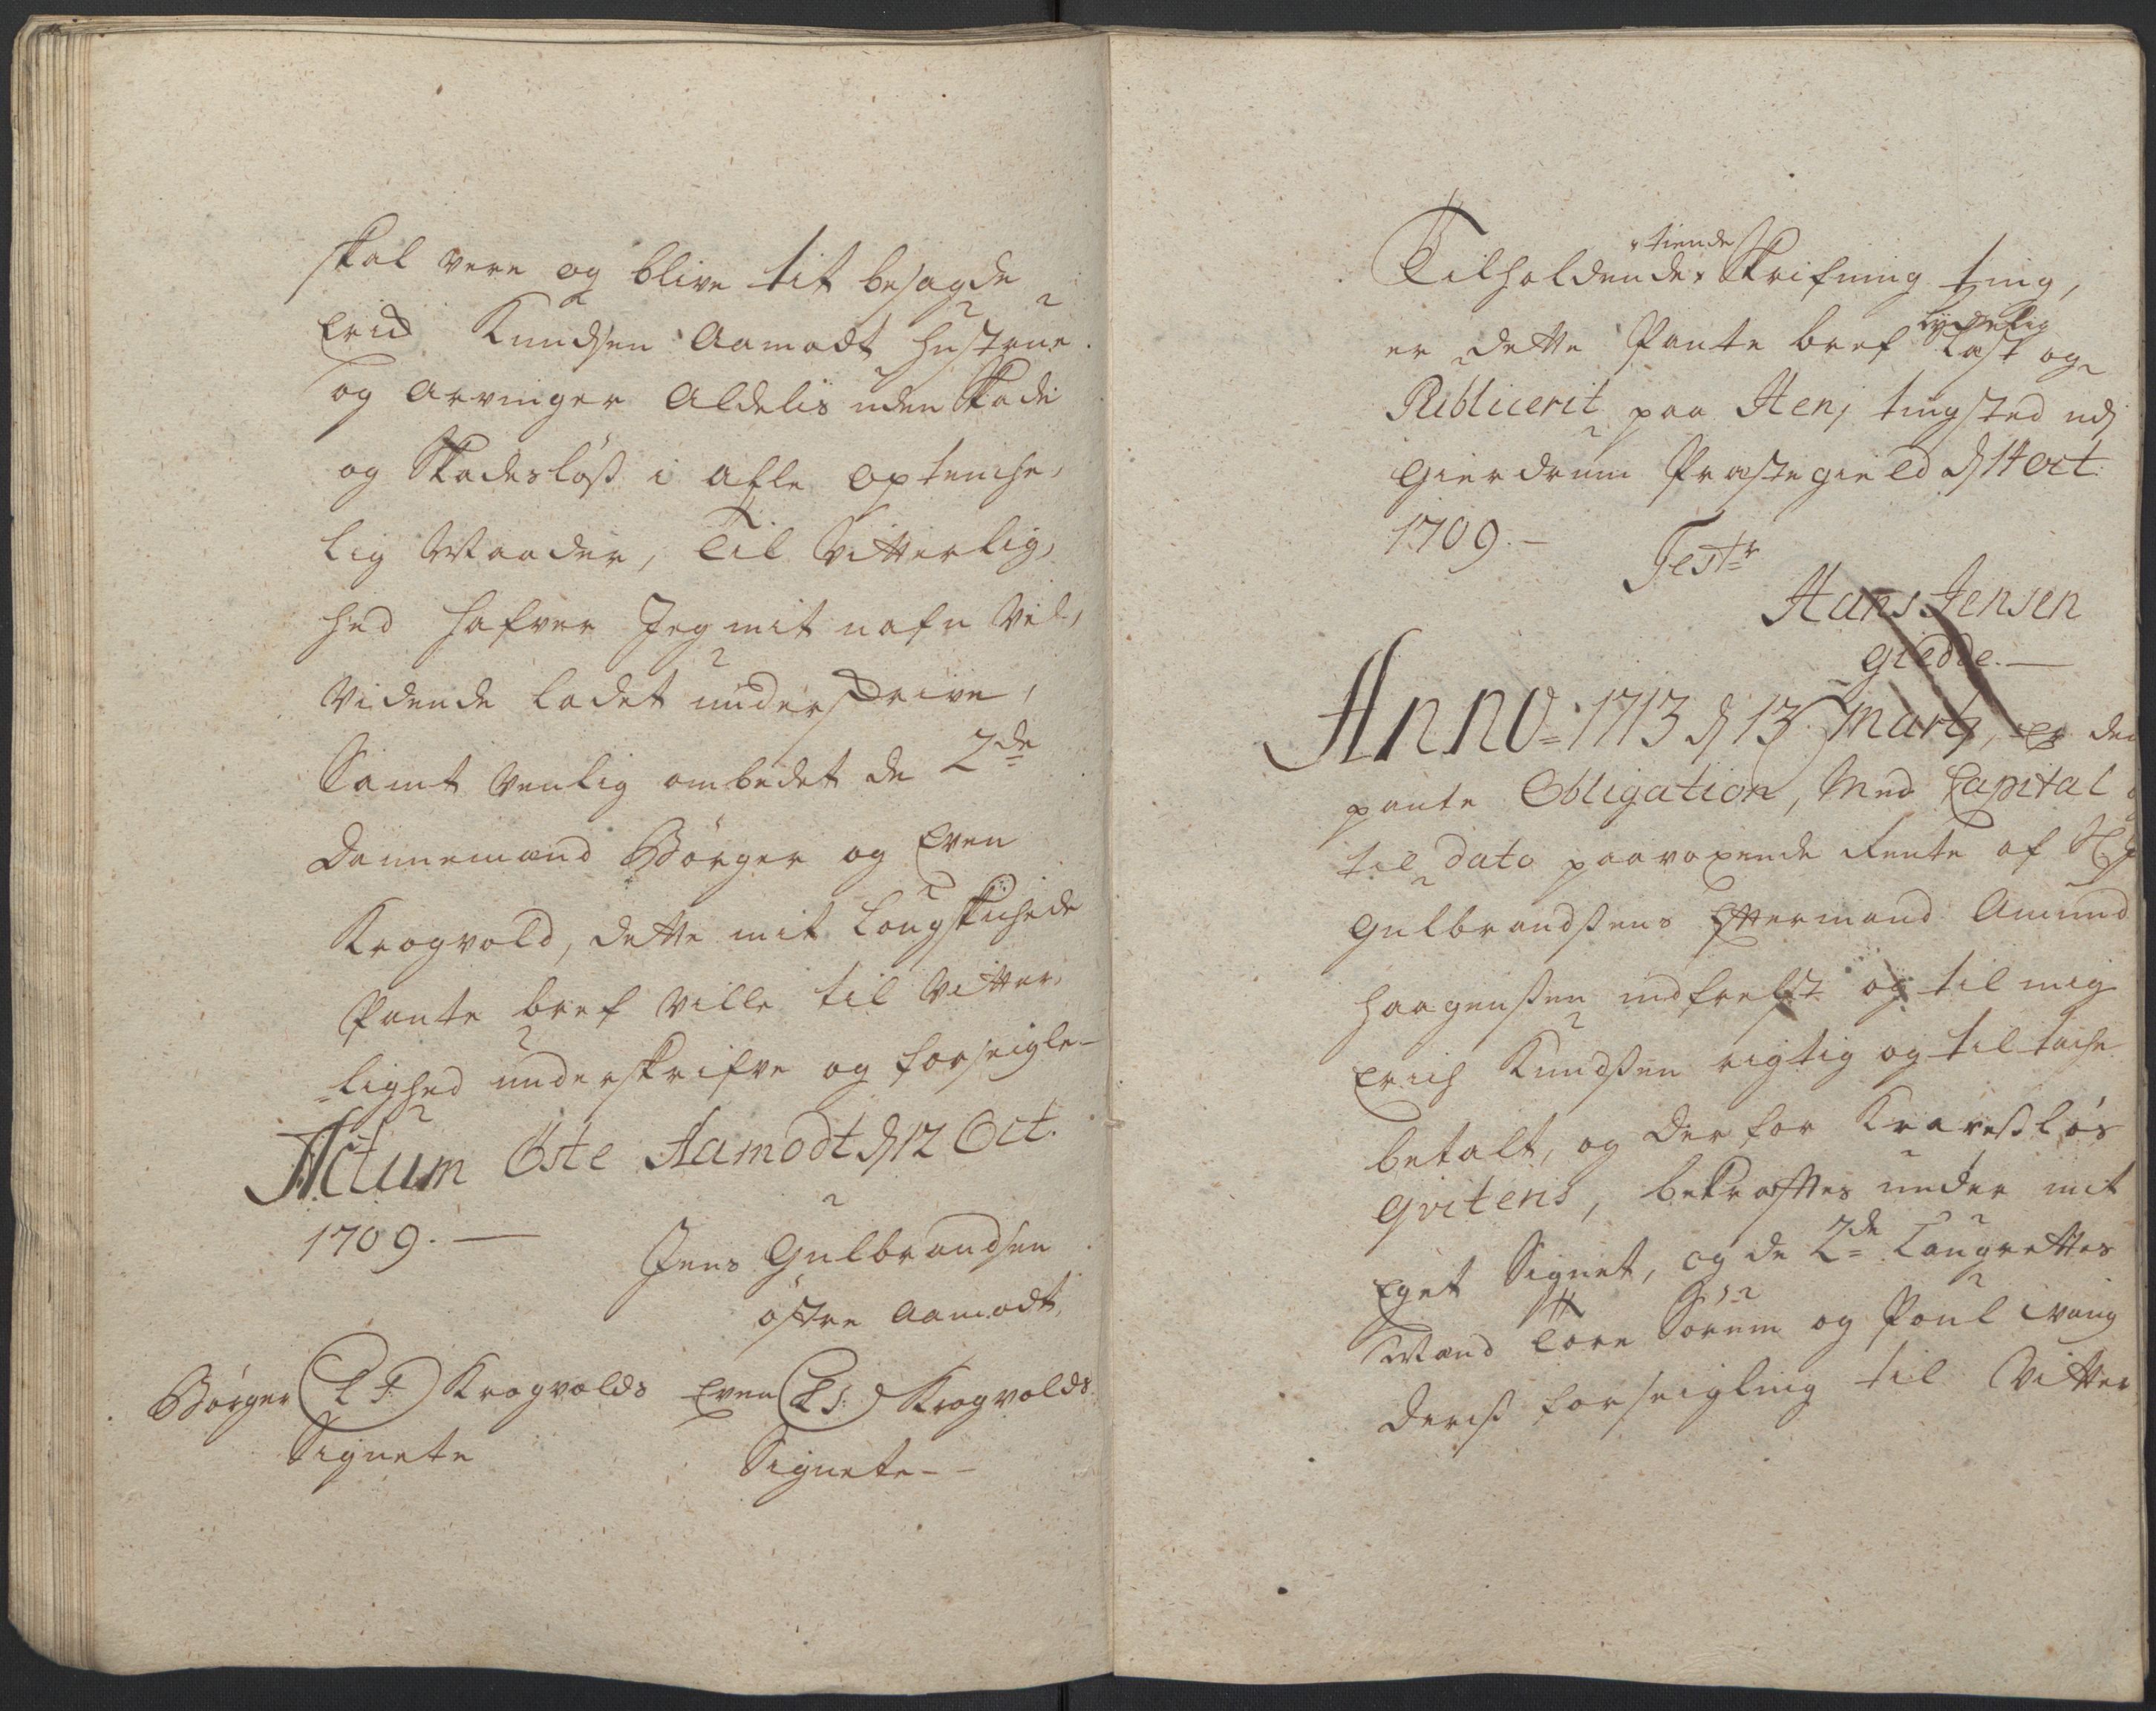 skal vere og blive tit besagde
Erich Knudsen Aamodt Hustrue
og Arvinger Aldelis uden Skade
og Skadesløß i alle optenche,
lig Maader, Til Vitterlig,
hed hafver Jeg mit nafn Vel,
Vidende ladet underskrive,
Samt Venlig ombedet de 2de
Dannemænd Børger og Even
Krogvold, dette mit Laugskichede
Pante bref Ville til Vitter,
=lighed underskrifve og forseigle-
Actum Øste Aamodt d 12 Oct.
1709. —
Jens Gulbrandsen
østre Aamodt,
Børger L S Krogvolds Even L S: Krogvolds
Signete Signete--
tiende
Tilholdendes Skrifning ting,
lydelig
er dette Pante bref Læst og
Publicerit paa Henj tingsted udj
Gierdrum Præstegield d 14 Oct.
1709.—
Test
Hans Jensen
Giedde.—
Anno 1713 d 13 Marty, er den
pante Obligation, Med Capital
til dato paavoxende Rente af
Gulbrandßens Eftermand Amund
Haagenßen indfrelst og til mig
Erich Knudßen rigtig og til tache
betalt, og derfor Kraveßløs
qvitens, bekræftes under mit
Eget Signet, og de 2de Laugrettes
Mænd Tore Sørum og Poul Wang
Deriß forseigling til Vitter